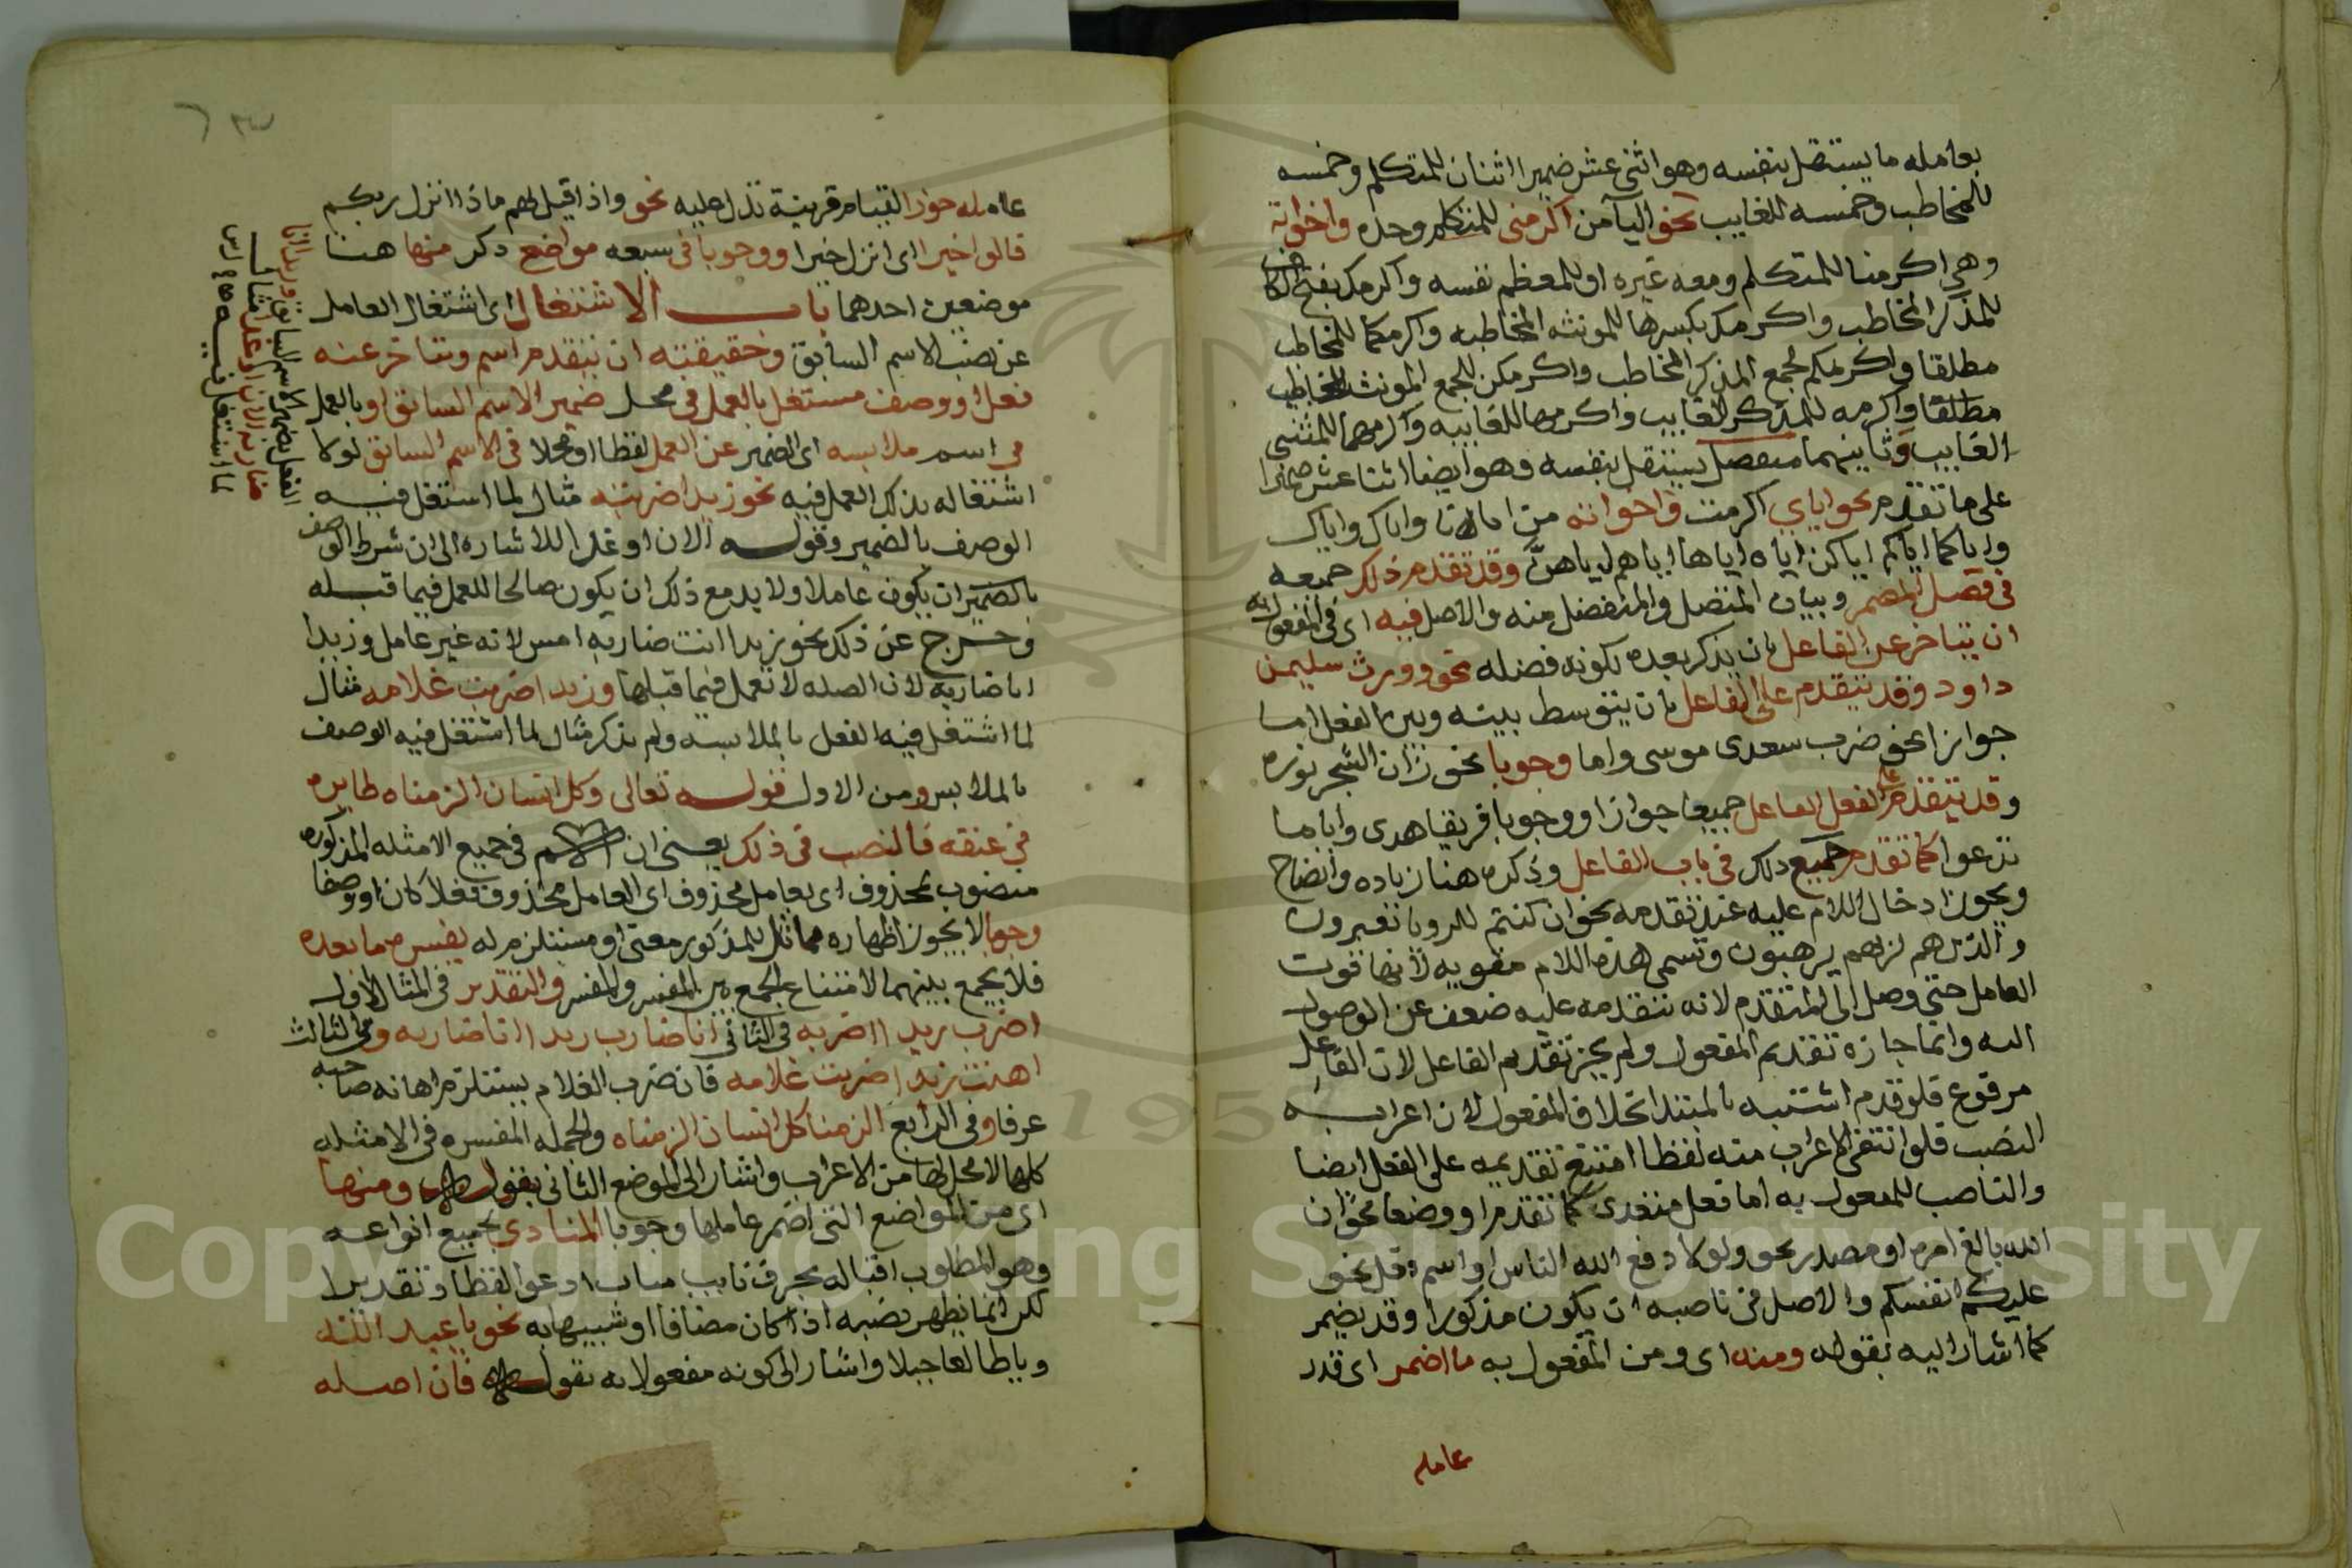 بعامله ما يستقل بنفسه وهو اثنى عشر ضميرا اثنان للمتكلم وخمسه
للمخاطب وخمسه للغايب نحو اليا من اكرمنى للمتكلم وحده واخواته
وهي اكرمنا للمتكلم ومعه غيره او للمعظم نفسه واكرمك بفتح الكاف
للمذكر المخاطب واكرمك بكسرها للمونثه المخاطبه واكرمكما للمخاطب
مطلقا واكرمكم لجمع المذكر المخاطب واكرمكن للجمع المونث المخاطب
مطلقا واكرمه للمذكر الغايب واكرمها للغايبه واكرمهما للمثنى
الغايب وثانيهما منفصل يستقل بنفسه وهو ايضا اثنا عشر ضميرا
على ما تقدم نحو اياي اكرمت واخواته من ايانا واياك واياك
واياكما اياكم اياكن اياه اياها اياهم اياهن وقد تقدم ذلك جميعه
في فصل المضمر وبيان المتصل والمنفصل منه والاصل فيه اى في المفعول به
ان يتاخر عن الفاعل بان يذكر بعده لكونه فضله نحو وورث سليمن
داود وقد يتقدم على الفاعل بان يتوسط بينه وبين الفعل اما
جوازا نحو ضرب سعدى موسى واما وجوبا نحو زان الشجر نوره
وقد يتقدم على الفعل الفاعل جميعا جوازا ووجوبا فريقا هدى وايا ما
تدعوا كما تقدم جميع ذلك في باب الفاعل وذكره هنا زياده وايضاح
ويجوز ادخال اللام عليه عند تقدمه نحو ان كنتم للرويا تعبرون
والذين هم لربهم يرهبون وتسمى هذه اللام مقويه لانها قوت
العامل حتى وصل الى المتقدم لانه بتقدمه عليه ضعف عن الوصول
اليه وانما جازه تقديم المفعول ولم يجز تقديم الفاعل لان الفاعل
مرفوع فلو قدم اشتبه بالمبتدا بخلاف المفعول لان اعرابه
النصب فلو انتفى الاعراب منه لفظا امتنع تقديمه على الفعل ايضا
والناصب للمفعول به اما فعل متعدى كما تقدم او وصفا نحو ان
الله بالغ امره او مصدر نحو ولولا دفع الله الناس او اسم فعل نحو
عليكم انفسكم والاصل في ناصبه ان يكون مذكورا وقد يضمر
كما اشار اليه بقوله ومنه اى ومن المفعول به ما اضمر اى قدر
عامله
عامله جوزا لقيام قرينة تدل عليه نحو واذا قيل لهم ماذا انزل ربكم
قالوا خيرا اى انزل خيرا ووجوبا في سبعه مواضع ذكر منها هنا
موضعين احدهما باب الاشتغال اى اشتغال العامل
عن نصب الاسم السابق وحقيقته ان يتقدم اسم ويتاخر عنه
فعل او وصف مشتغل بالعمل في محل ضمير الاسم السابق او بالعمل
في اسم ملابسه اى الضمير عن العمل لفظا او محلا في الاسم السابق لولا
اشتغاله بذلك العمل فيه نحو زيدا ضربته مثال لما اشتغل فيه
الفعل بضمير الاسم السابق وزيد انا
ضاربه الان او غدا مثال
لما اشتغل فيه
الوصف بالضمير وقوله الان او غدا للاشاره الى ان شرط الوصف
بالضمير ان يكون عاملا ولا بد مع ذلك ان يكون صالحا للعمل فيما قبله
وخرج عن ذلك نحو زيدا انت ضاربه امس لانه غير عامل وزيدا
انا ضاربه لان الصله لا تعمل فيما قبلها وزيدا ضربت غلامه مثال
لما اشتغل فيه الفعل بالملابسه ولم يذكر مثال لما اشتغل فيه الوصف
بالملابس ومن الاول قوله تعالى وكل انسان الزمناه طايره
في عنقه فالنصب في ذلك يعني ان الاسم في جميع الامثله المذكوره
منصوب بمحذوف اى بعامل محذوف اى العامل محذوف فعلا كان او وصفا
وجوبا لا يجوز اظهاره مماثل للمذكور معنى او مستلزم له يفسره ما بعده
فلا يجمع بينهما لامتناع الجمع بين المفسر والمفسر والتقدير في المثال الاول
اضرب زيدا اضربه في الثاني انا ضارب زيدا انا ضاربه وفي الثالث
اهنت زيدا ضربت غلامه فان ضرب الغلام يستلزم اهانه صاحبه
عرفا وفي الرابع الزمنا كل انسان الزمناه والجمله المفسره في الامثله
كلها لا محل لها من الاعراب واشار الى الموضع الثاني بقوله ومنها
اى من المواضع التي اضمر عاملها وجوبا المنادى بجميع انواعه
وهو المطلوب اقباله بحرف نايب مناب ادعوا لفظا او تقديرا
لكن انما يظهر نصبه اذا كان مضافا او شبيها به نحو يا عبد الله
ويا طالعا جبلا واشار الى كونه مفعولا به بقوله فان اصله